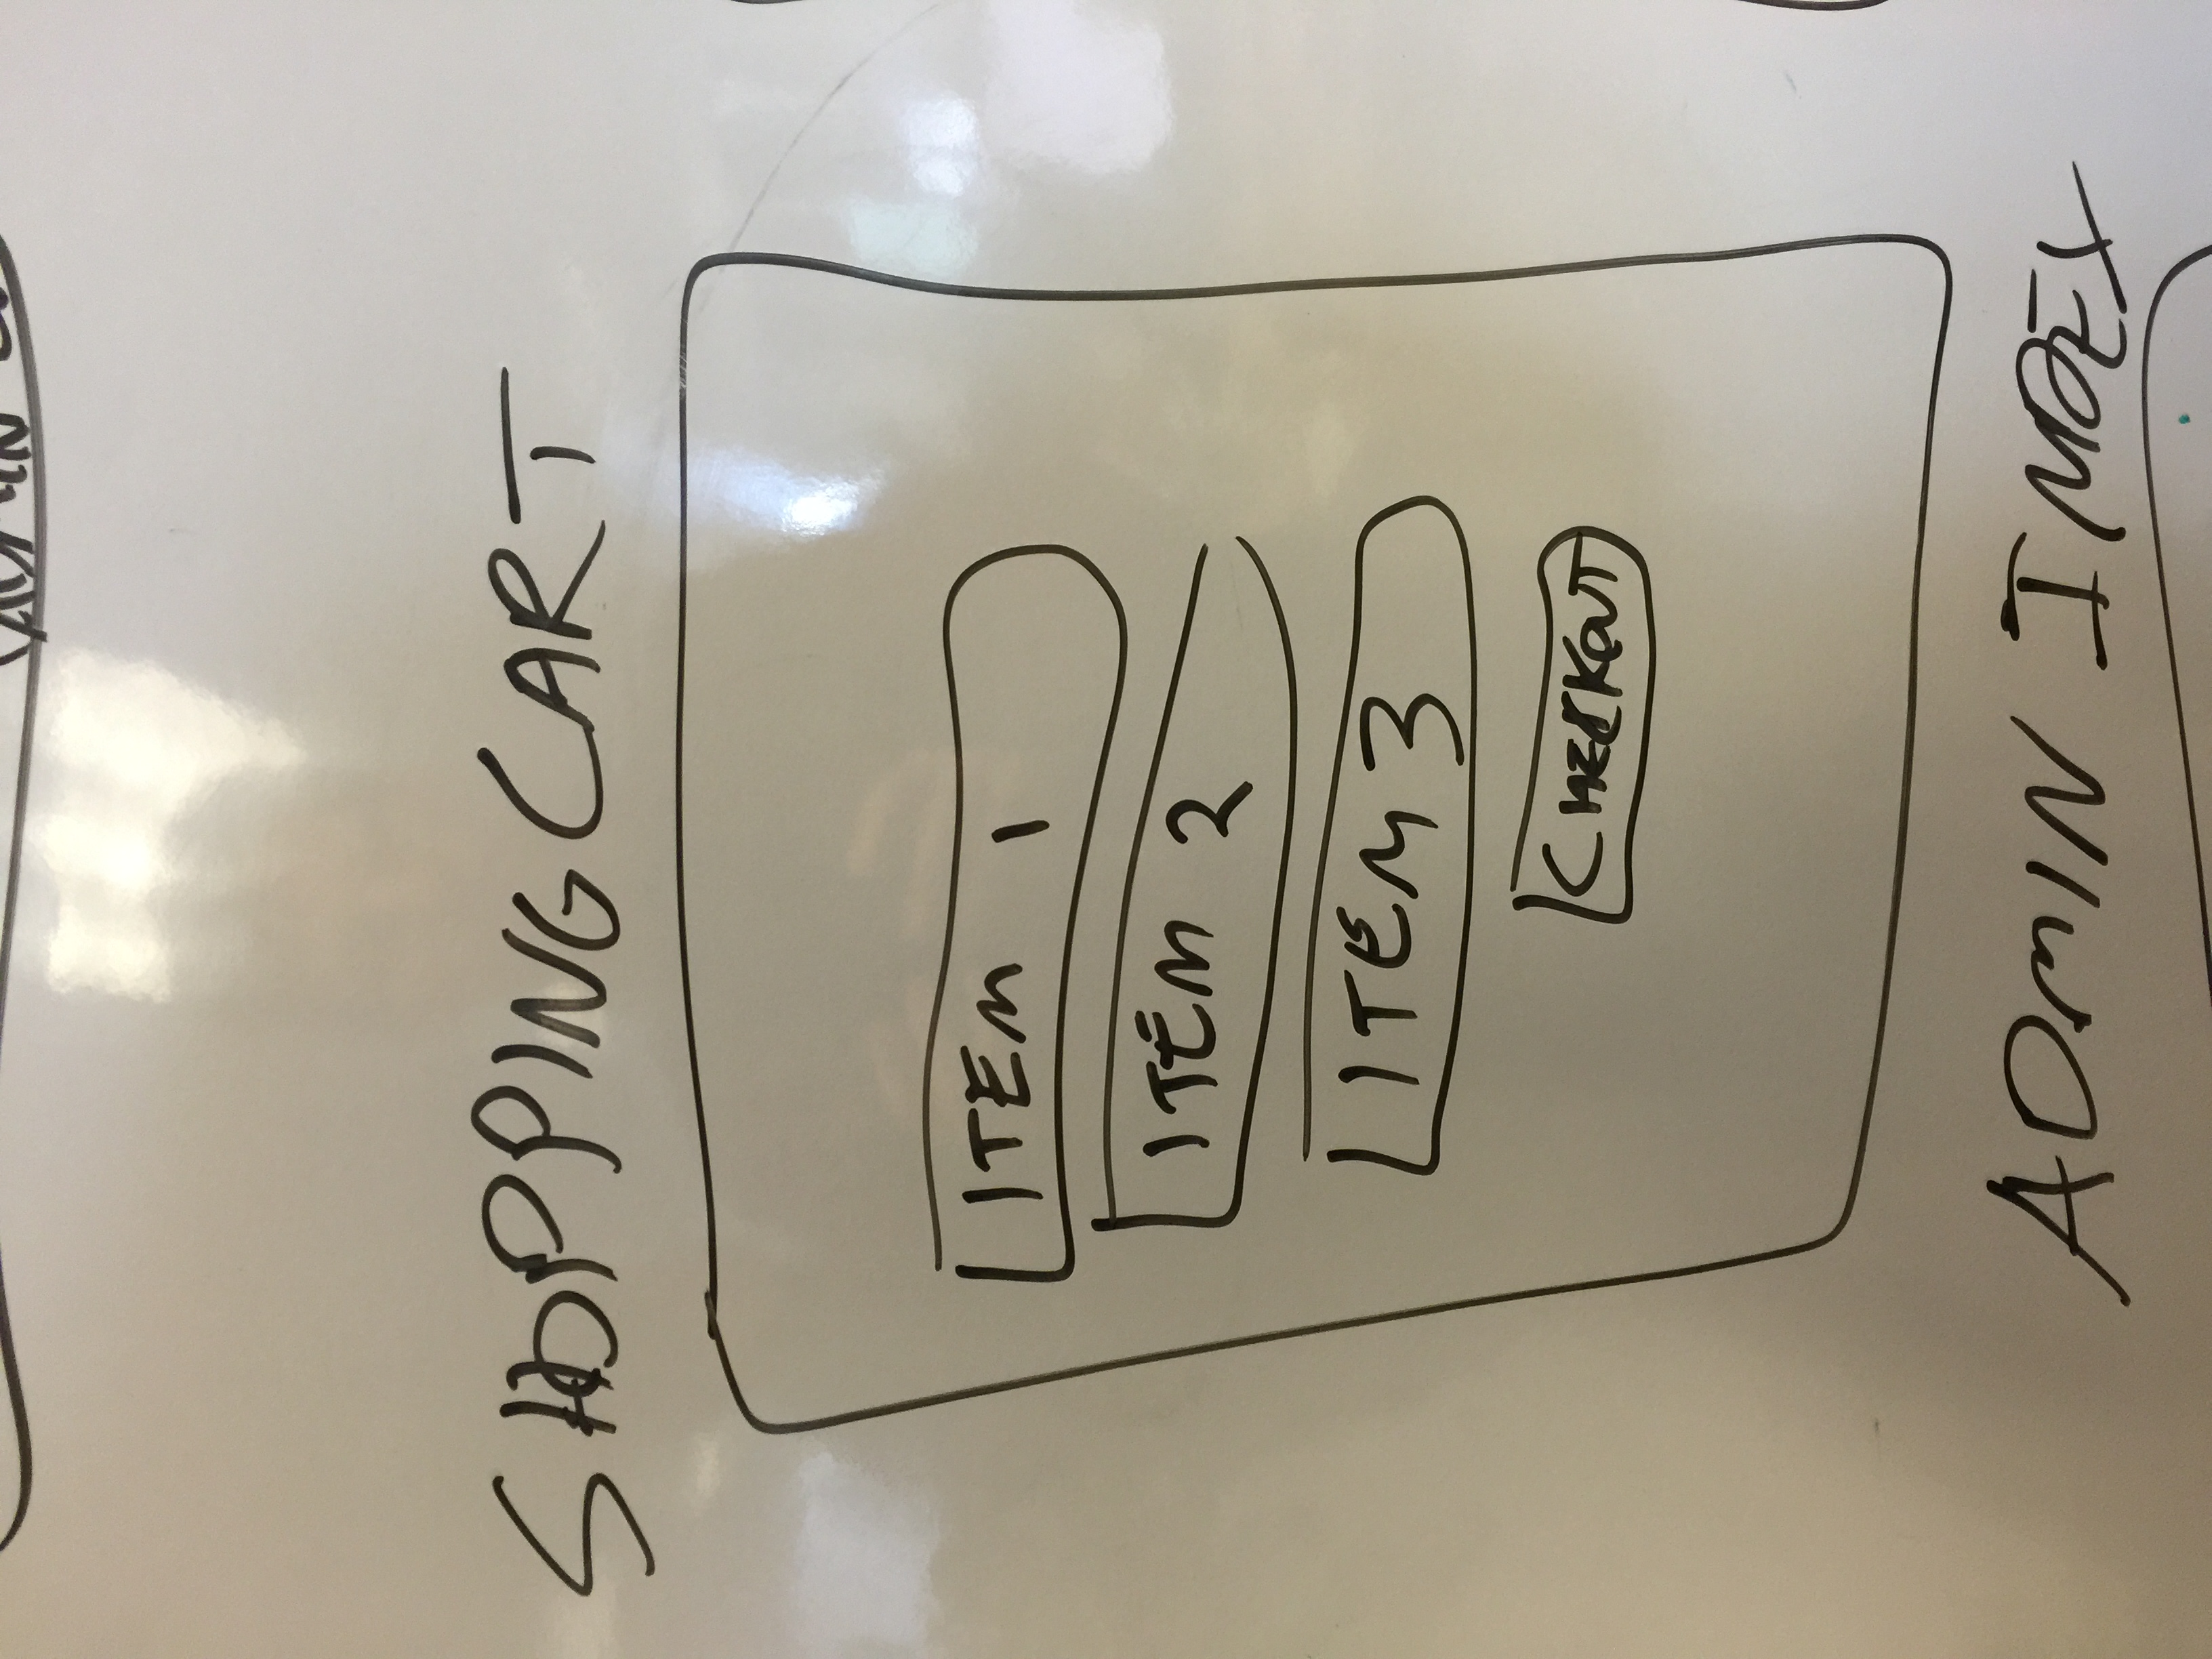 ADMIN
SHOPPING CART
ITEM 1
ITEM 2
ITEM 3
CHECKOUT
ADMIN INDEX